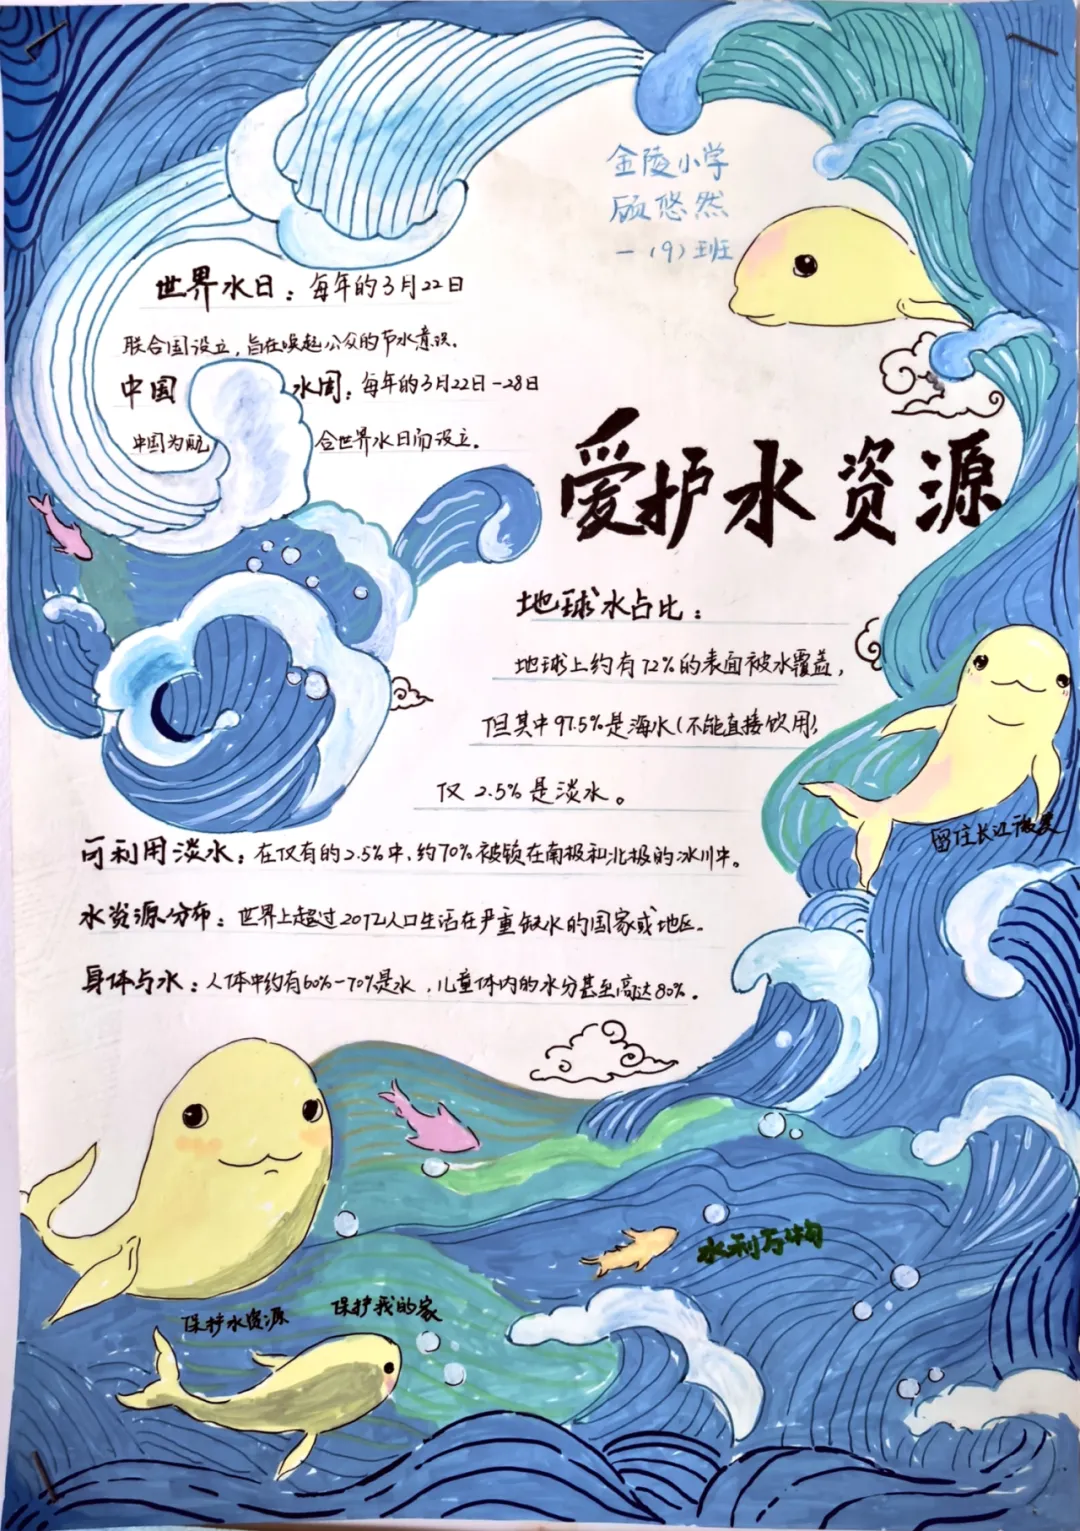 金陵小学
顾悠然
一（9）班
世界水日：每年的3月22日
联合国设立，旨在唤起公众的节水意识。
中国水周：每年的3月22日-28日
中国为配合世界水日而设立。
爱护水资源
地球水占比：
地球上约有72%的表面被水覆盖，
但其中97.5%是海水（不能直接饮用）
仅2.5%是淡水。
留住长江微笑
可利用淡水：在仅有的2.5%中，约70%被锁在南极和北极的冰川中。
水资源分布：世界上超过20亿人口生活在严重缺水的国家或地区。
身体与水：人体中约有60%-70%是水，儿童体内的水分甚至高达80%。
水利万物
保护水资源 保护我的家